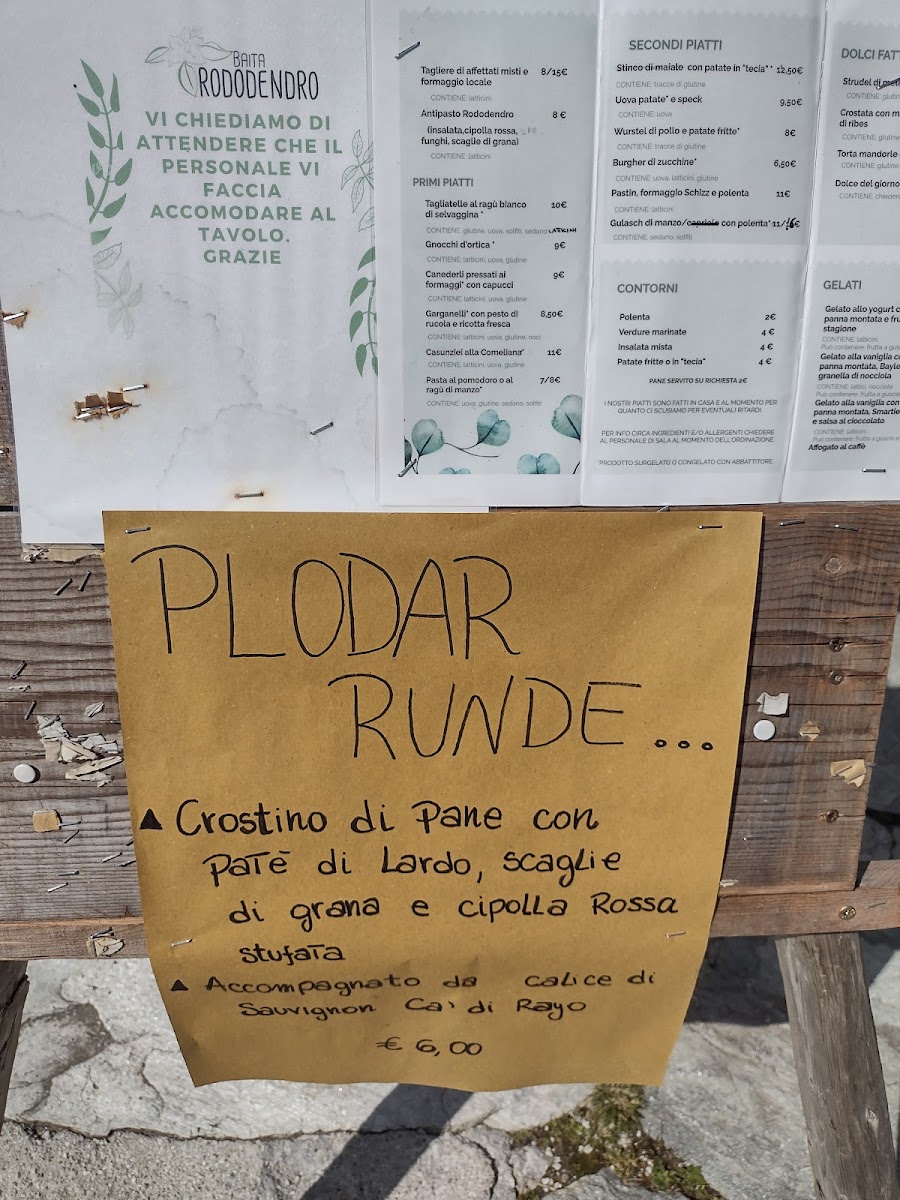 BAITA
RODODENDRO
VI CHIEDIAMO DI
ATTENDERE CHE IL
PERSONALE VI
FACCIA
ACCOMODARE AL
TAVOLO.
GRAZIE
Tagliere di affettati misti e 8/15€
formaggio locale
CONTIENE: latticini
Antipasto Rododendro 8 €
(insalata,cipolla rossa,
funghi, scaglie di grana)
CONTIENE: latticini
PRIMI PIATTI
Tagliatelle al ragù bianco 10€
di selvaggina *
CONTIENE: glutine, uova, solfiti, sedano LATTICINI
Gnocchi d'ortica * 9€
CONTIENE: latticini, uova, glutine
Canederli pressati ai 9€
formaggi* con capucci
CONTIENE: latticini, uova, glutine
Garganelli* con pesto di 8,50€
rucola e ricotta fresca
CONTIENE: latticini, uova, glutine, noci
Casunziei alla Comeliana* 11€
CONTIENE: latticini, uova, glutine
Pasta al pomodoro o al 7/8€
ragù di manzo*
CONTIENE: uova, glutine, sedano, solfiti
SECONDI PIATTI
Stinco di maiale con patate in "tecia" * 12,50€
CONTIENE: tracce di glutine
Uova patate* e speck 9,50€
CONTIENE: uova
Wurstel di pollo e patate fritte* 8€
CONTIENE: tracce di glutine
Burgher di zucchine* 6,50€
CONTIENE: uova, latticini, glutine
Pastin, formaggio Schizz e polenta 11€
CONTIENE: latticini
Gulasch di manzo/capriolo con polenta* 11/16€
CONTIENE: sedano, solfiti
CONTORNI
Polenta 2€
Verdure marinate 4 €
Insalata mista 4 €
Patate fritte o in "tecia" 4 €
PANE SERVITO SU RICHIESTA 2€
I NOSTRI PIATTI SONO FATTI IN CASA E AL MOMENTO PER
QUANTO CI SCUSIAMO PER EVENTUALI RITARDI.
PER INFO CIRCA INGREDIENTI E/O ALLERGENI CHIEDERE
AL PERSONALE DI SALA AL MOMENTO DELL'ORDINAZIONE
*PRODOTTO SURGELATO O CONGELATO CON ABBATTITORE
DOLCI FATT
Strudel di
CONTIENE: glutin
Crostata con m
di ribes
CONTIENE: glutin
Torta mandorle
CONTIENE: glutine
Dolce del giorno
CONTIENE: chieder
GELATI
Gelato allo yogurt c
panna montata e fru
stagione
CONTIENE: latticini
Può contenere: frutta a gus
Gelato alla vaniglia c
panna montata, Bayle
granella di nocciola
CONTIENE: lattici, nocciole
Può contenere: frutta a gus
Gelato alla vaniglia con
panna montata, Smartie
e salsa al cioccolato
CONTIENE: latticini
Può contenere: frutta a guscio e
Affogato al caffè
PLODAR
RUNDE...
▲ Crostino di Pane con
Patè di Lardo, scaglie
di grana e cipolla Rossa
stufata
▲ Accompagnato da calice di
Sauvignon Ca' di Rayo
€ 6,00